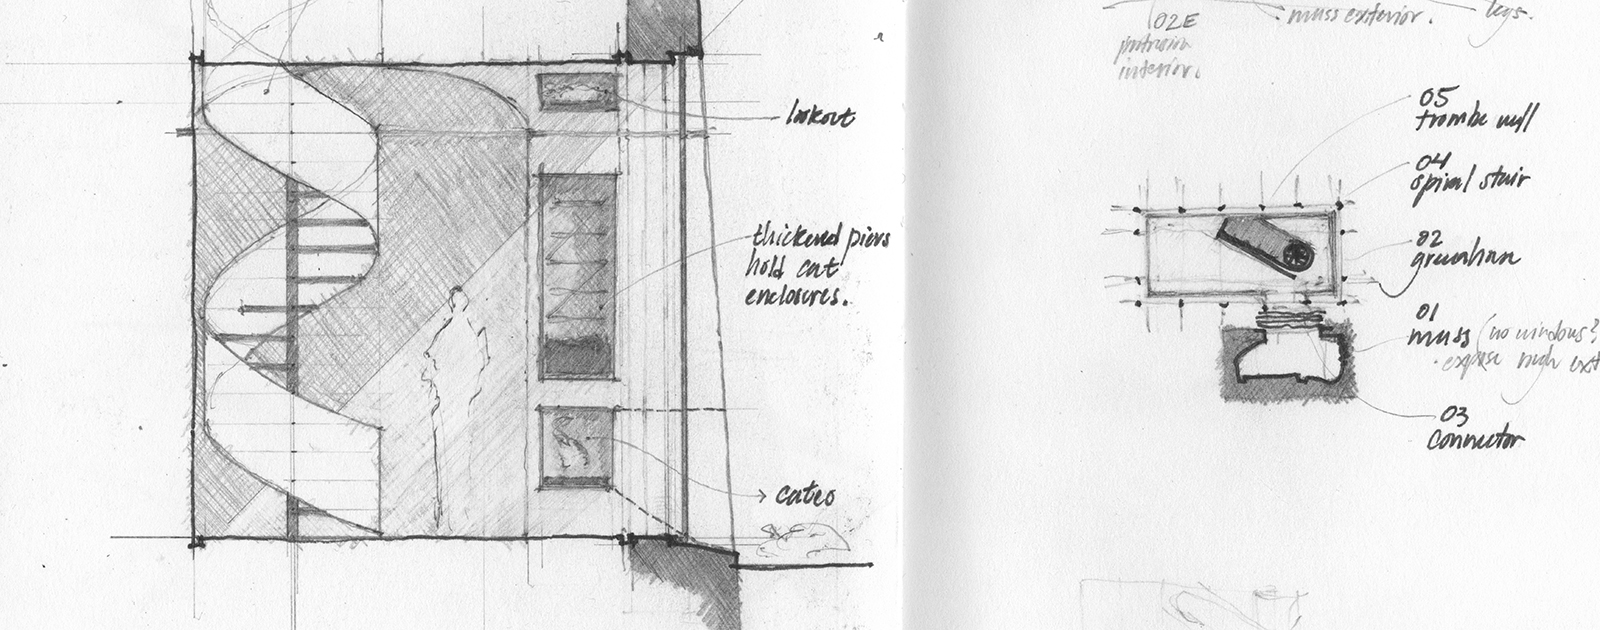 lookout
thickened piers
hold cat
enclosures.
cateo
02E
protrusion
interior.
mass exterior.
legs.
05
trombe wall
04
spiral stair
02
greenhouse
01
mass (no windows?
expose rough ext
03
connector